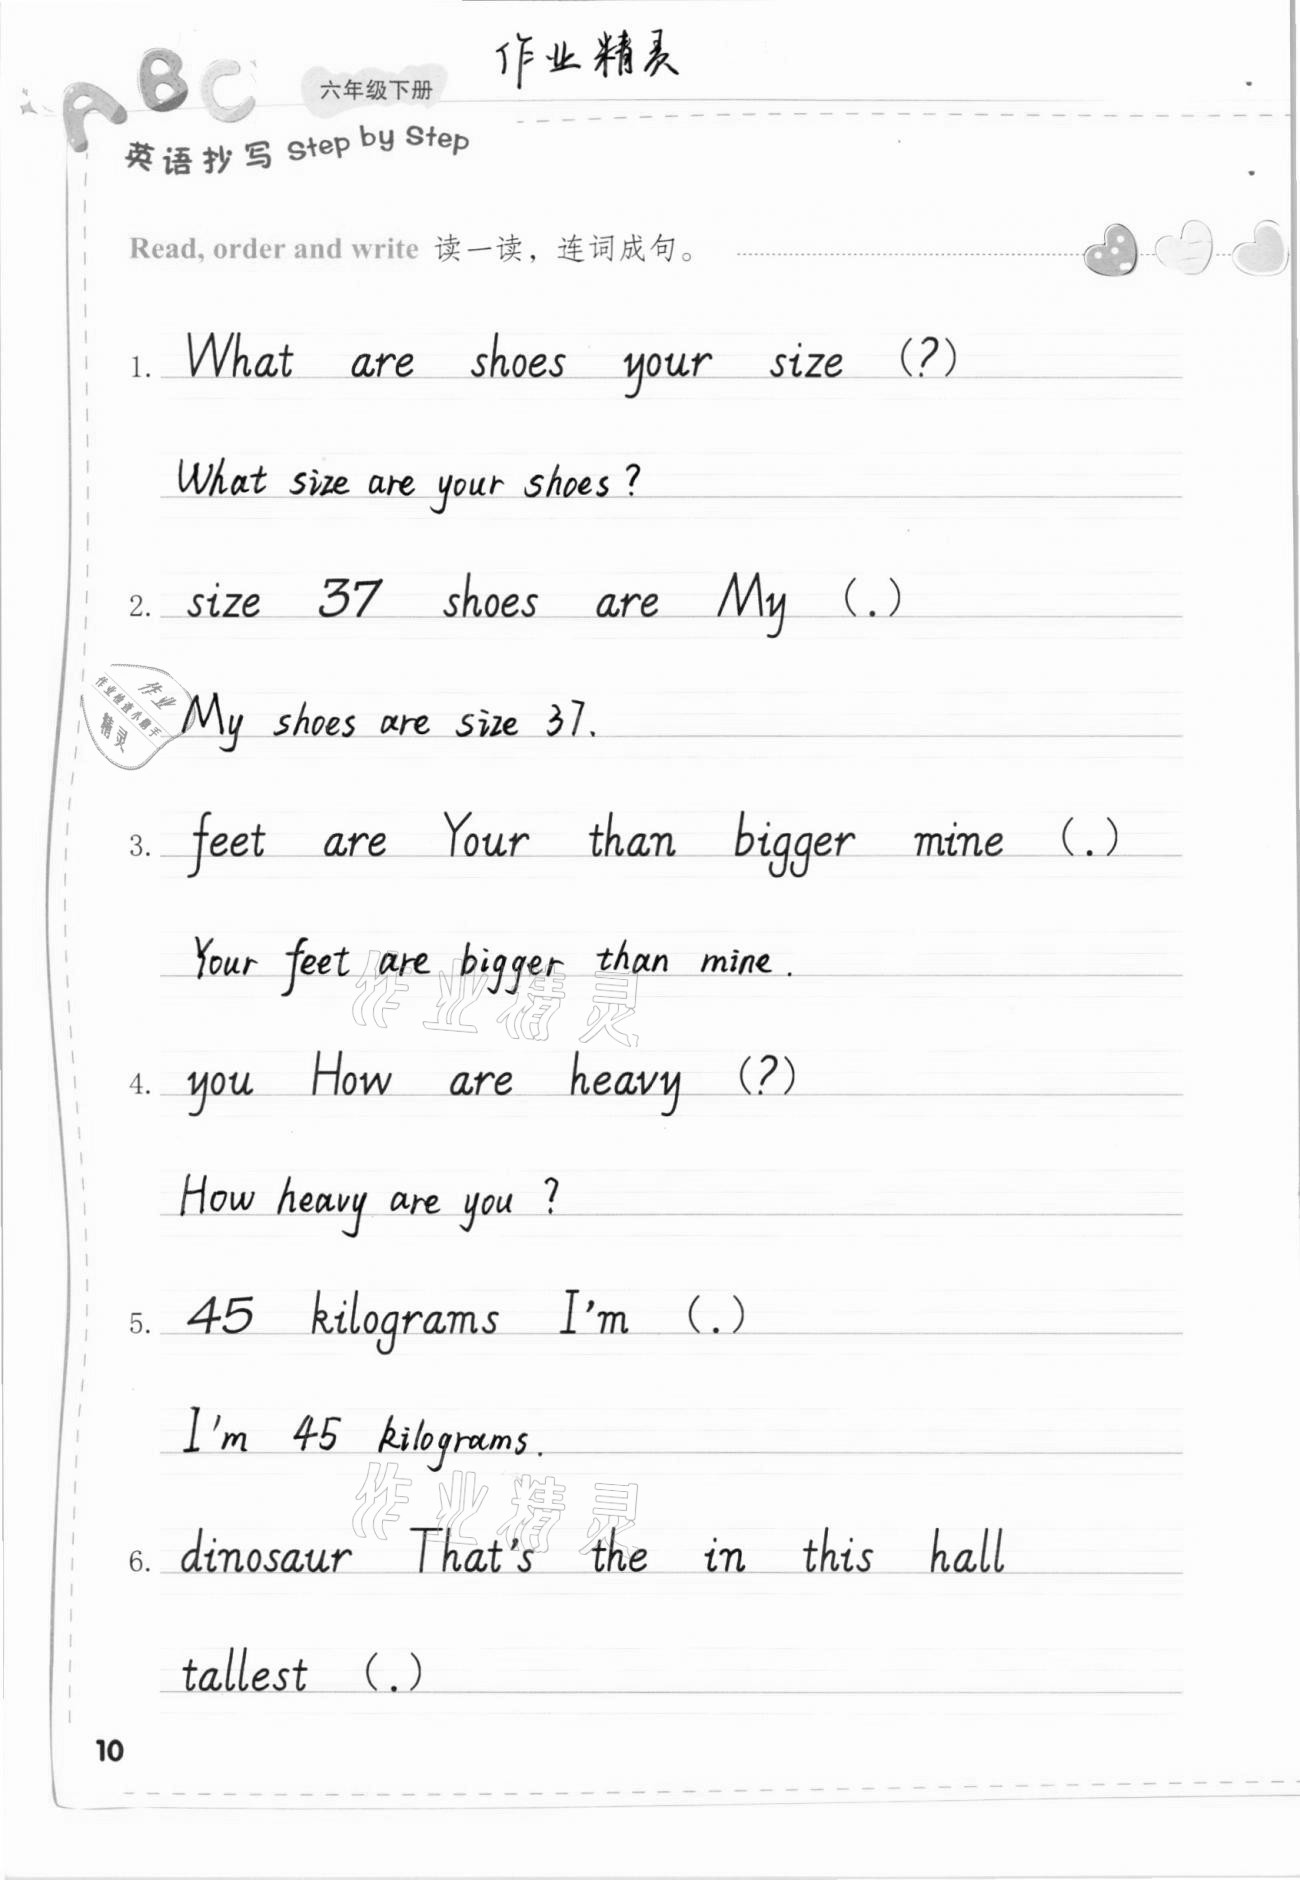 作业精灵
ABC
六年级下册
英语抄写 Step by Step
Read, order and write 读一读，连词成句。
1. What are shoes your size (?)
What size are your shoes?
2. size 37 shoes are My (.)
作业
作业检查小帮手
精灵
My shoes are size 37.
3. feet are Your than bigger mine (.)
Your feet are bigger than mine.
作业精灵
4. you How are heavy (?)
How heavy are you?
5. 45 kilograms I'm (.)
I'm 45 kilograms.
作业精灵
6. dinosaur That's the in this hall
tallest (.)
10